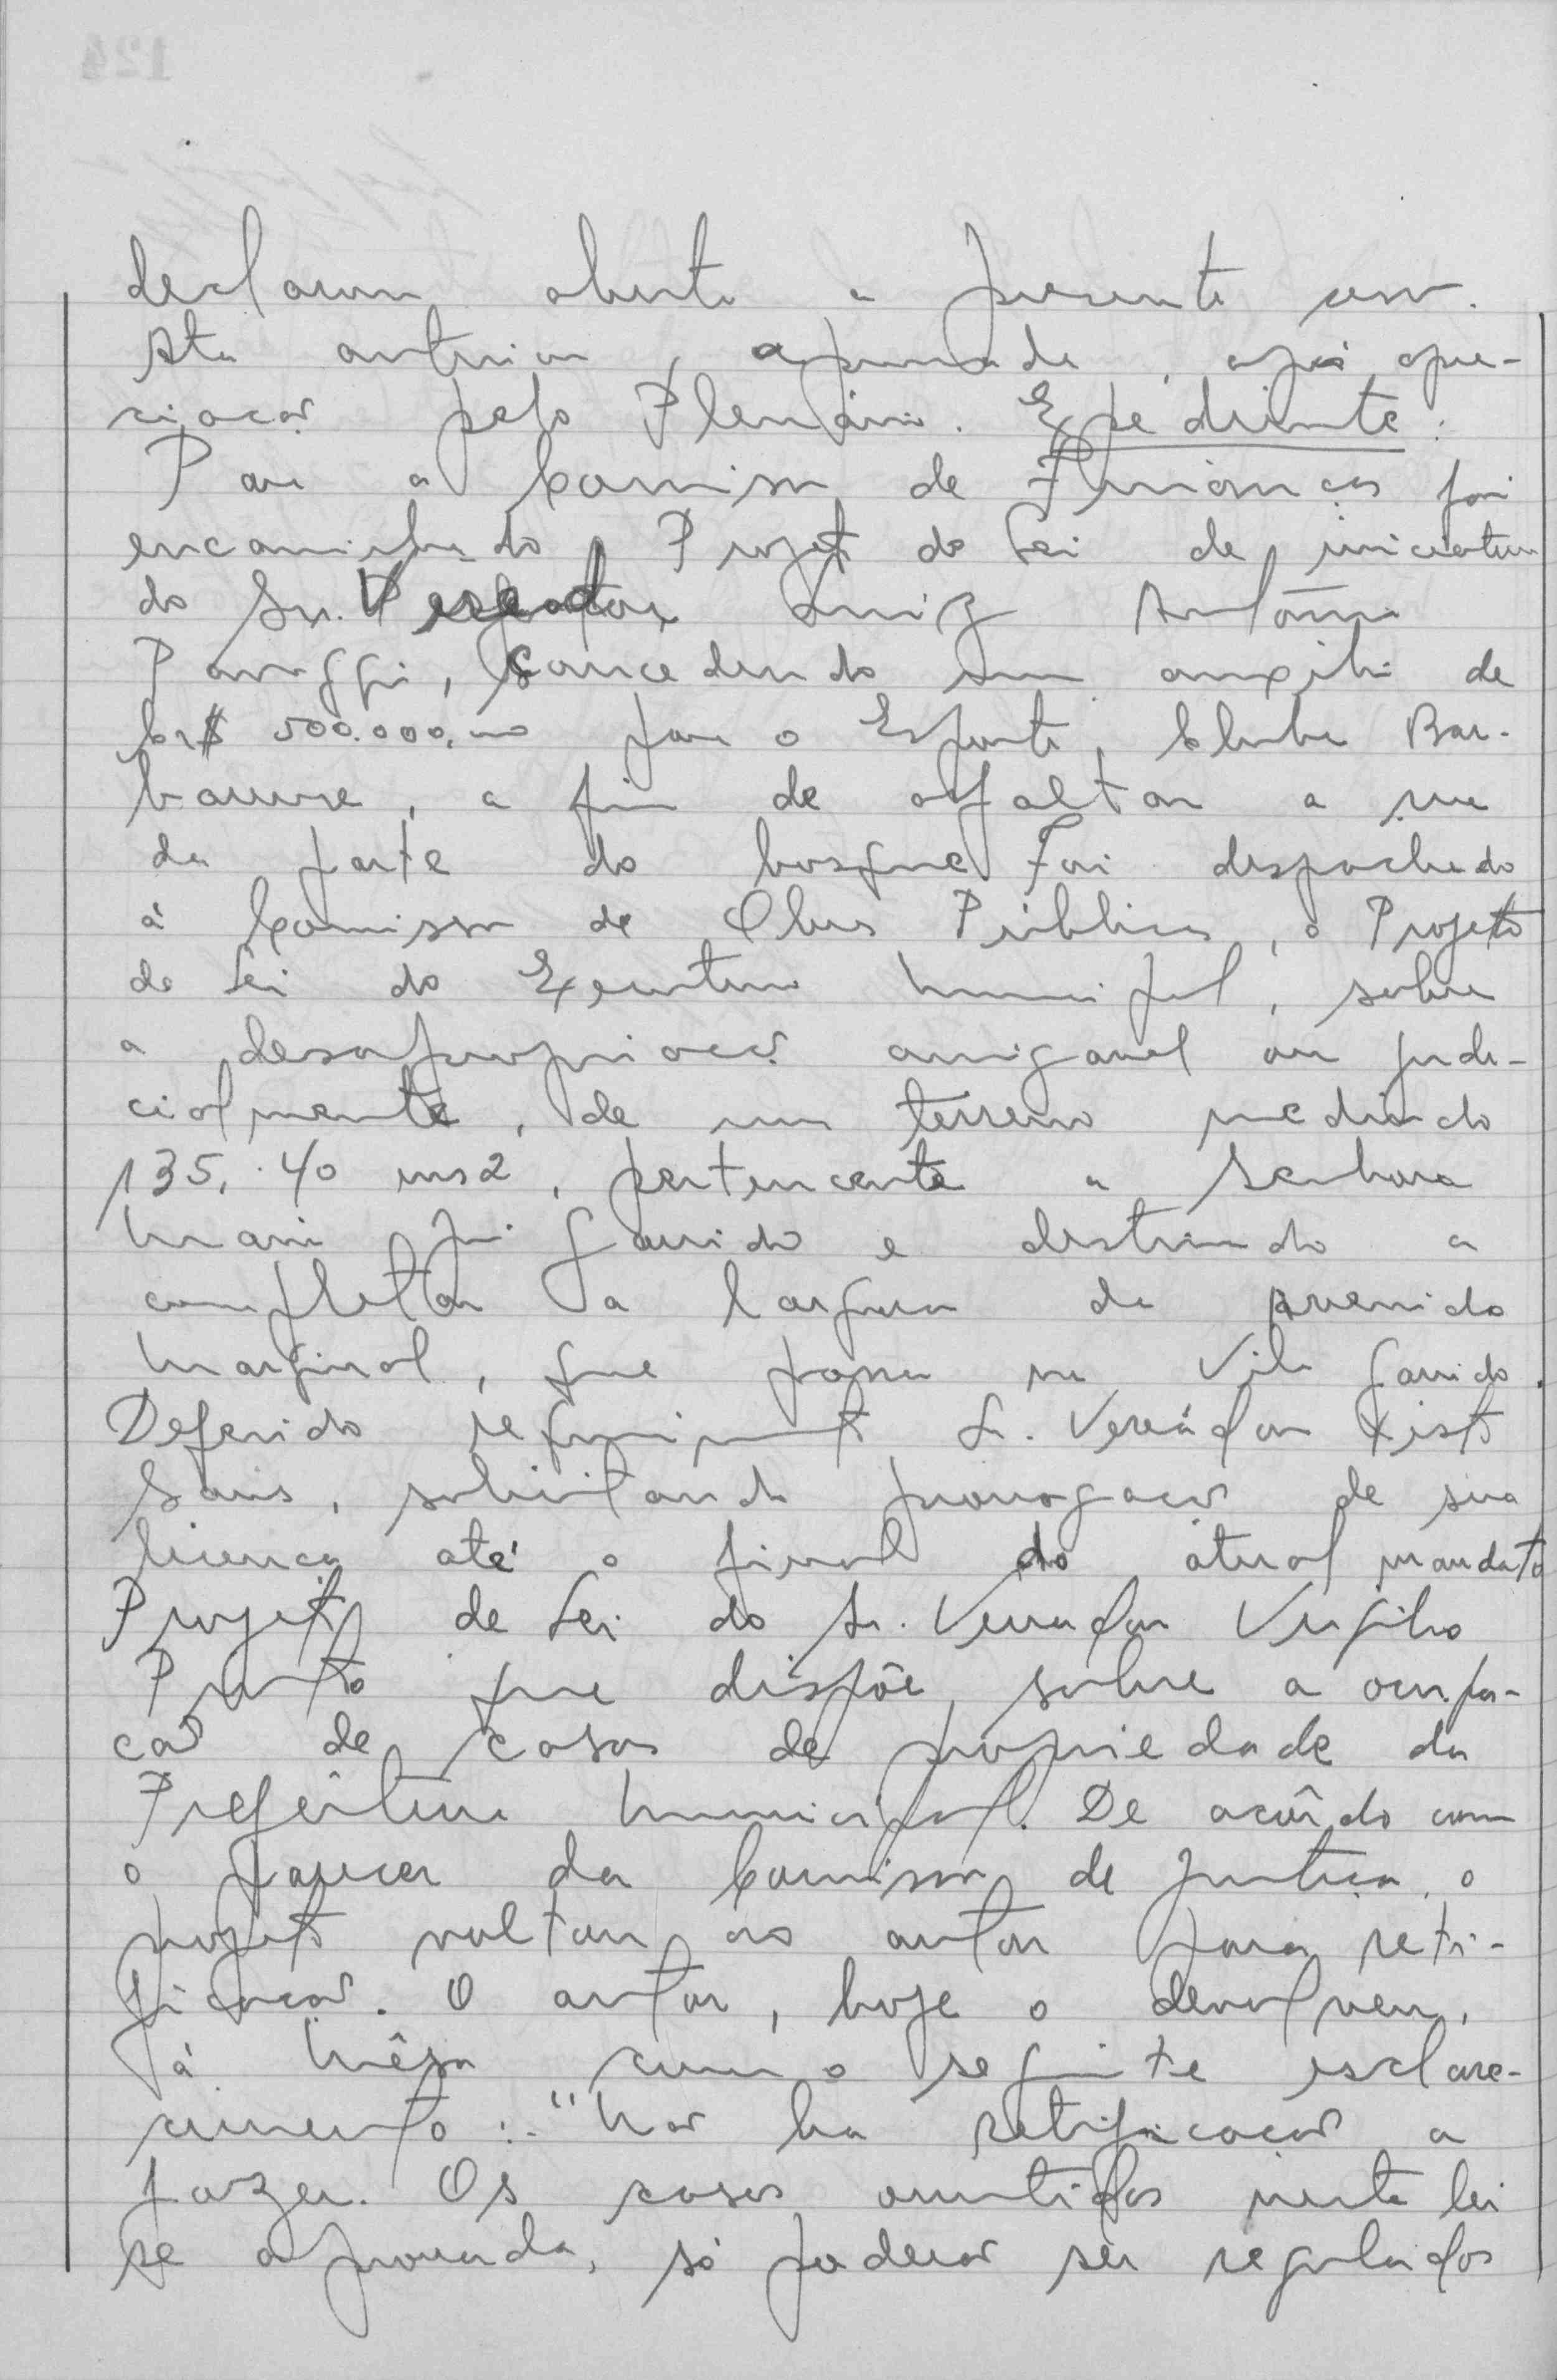 declarou aberta a presente sessão.
Ata anterior, aprovada, após apre-
ciação pelo Plenário. Expediente:
Para a Comissão de Finanças foi
encaminhado, Projeto de Lei de iniciativa
do Sr. Vereador Luiz Antônio
Panaggi, concedendo um auxilio de
Cr$ 500.000,00 para o Esporte Clube Bar-
barense, a fim de asfaltar a rua
da parte do bosque. Foi despachado
à Comissão de Obras Públicas, o Projeto
de Lei do Executivo Municipal, sobre
a desapropriação amigavel ou judi-
cialmente, de um terreno medindo
135,40 ms2, pertencente a Senhora
Maria Garrido e destinado a
completar a largura da avenida
Marginal, que passa na Vila Garrido.
Deferido requerimento Sr. Vereador Xisto
, solicitando prorrogação de sua
licença até o final do atual mandato
Projeto de Lei do Sr. Vereador Virgilio
que dispõe, sobre a ocupa-
ção de casas de propriedade da
Prefeitura Municipal. De acôrdo com
o parecer da Comissão de Justiça, o
projeto voltou ao autor para reti-
ficação. O autor, hoje o devolveu,
à Mêsa com o seguinte esclare-
cimento:- "Não ha retificação a
fazer. Os casos omitidos nesta lei
se aprovada, só poderão ser regulados